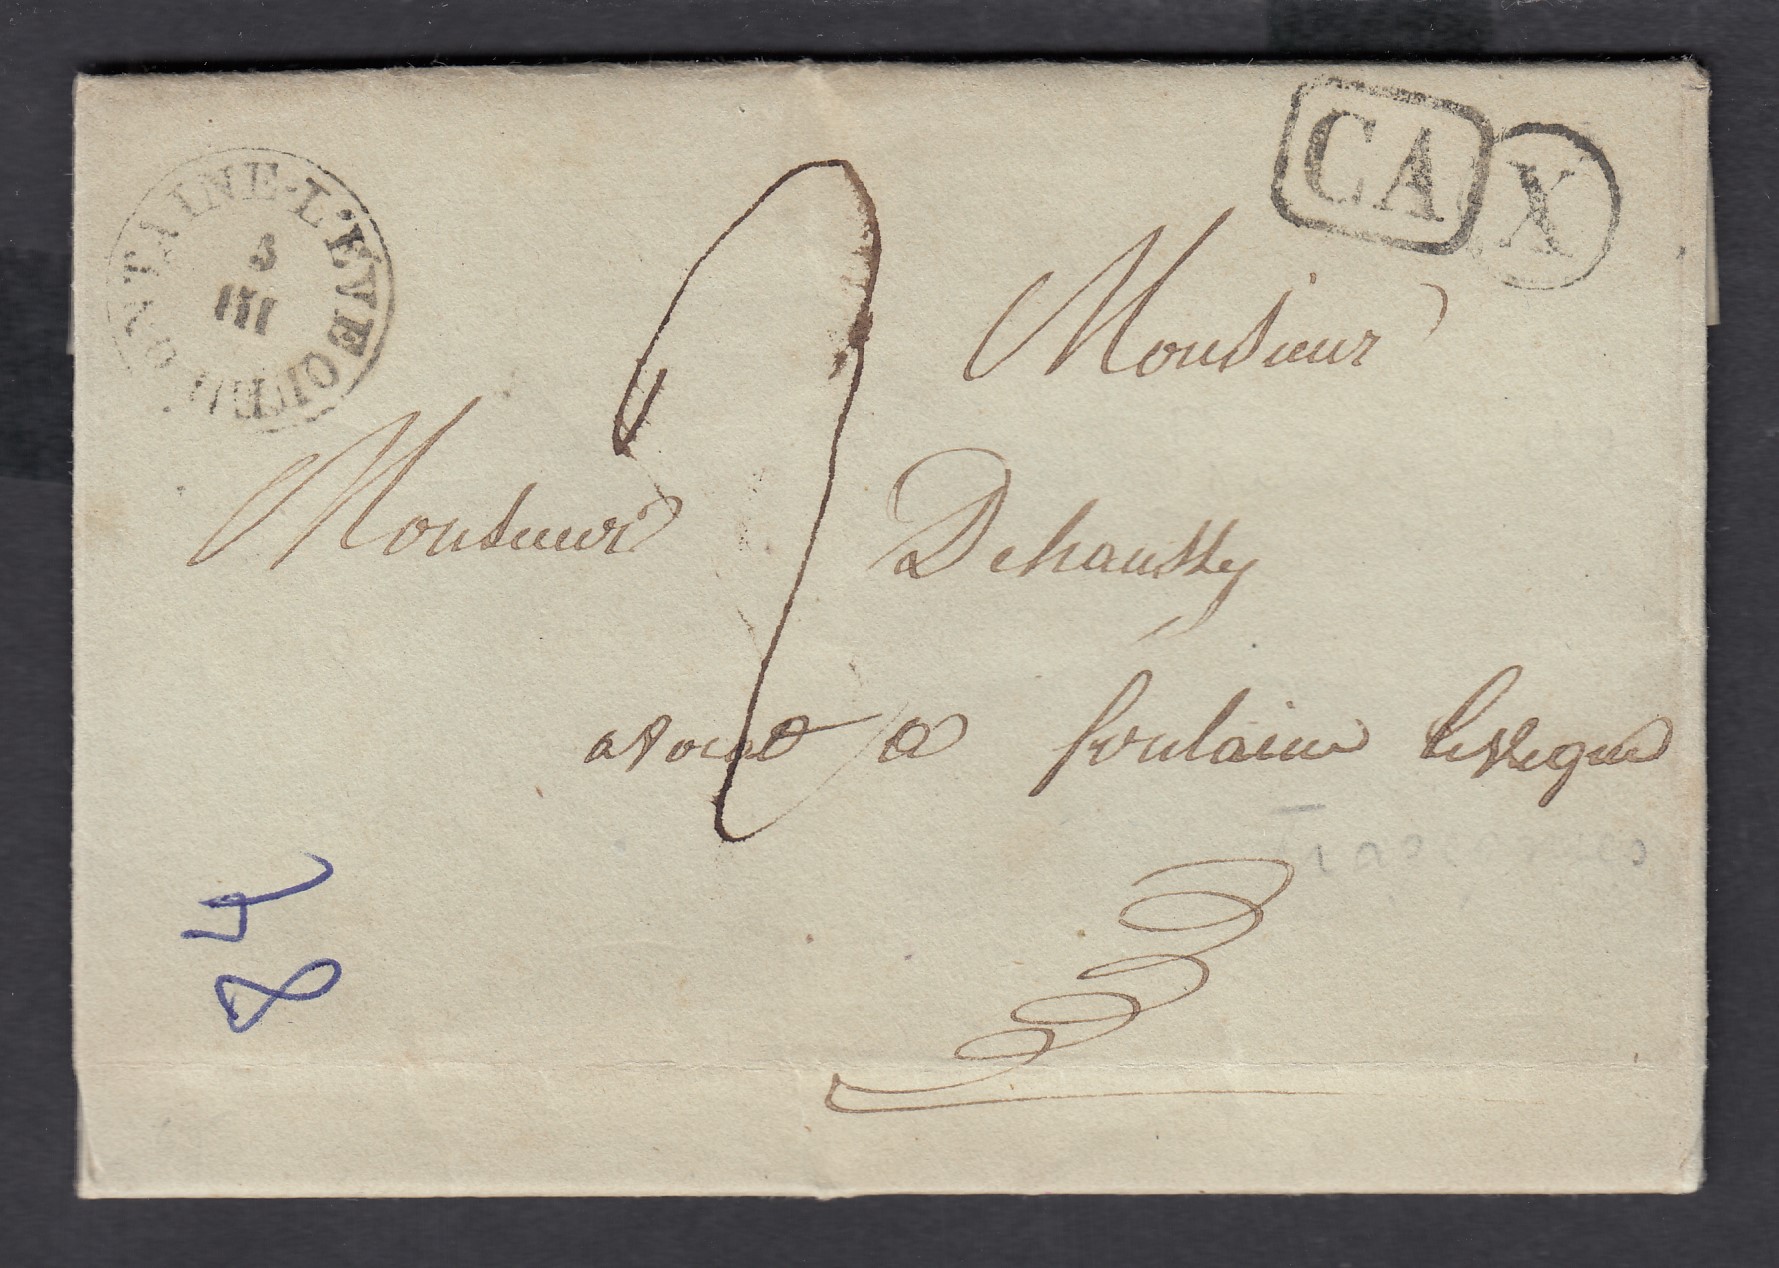 FONTAINE-L'ÉVEQUE
3
III
CA X
2
Monsieur
Monsieur
Dehaussy
avocat a fontaine levêque
84